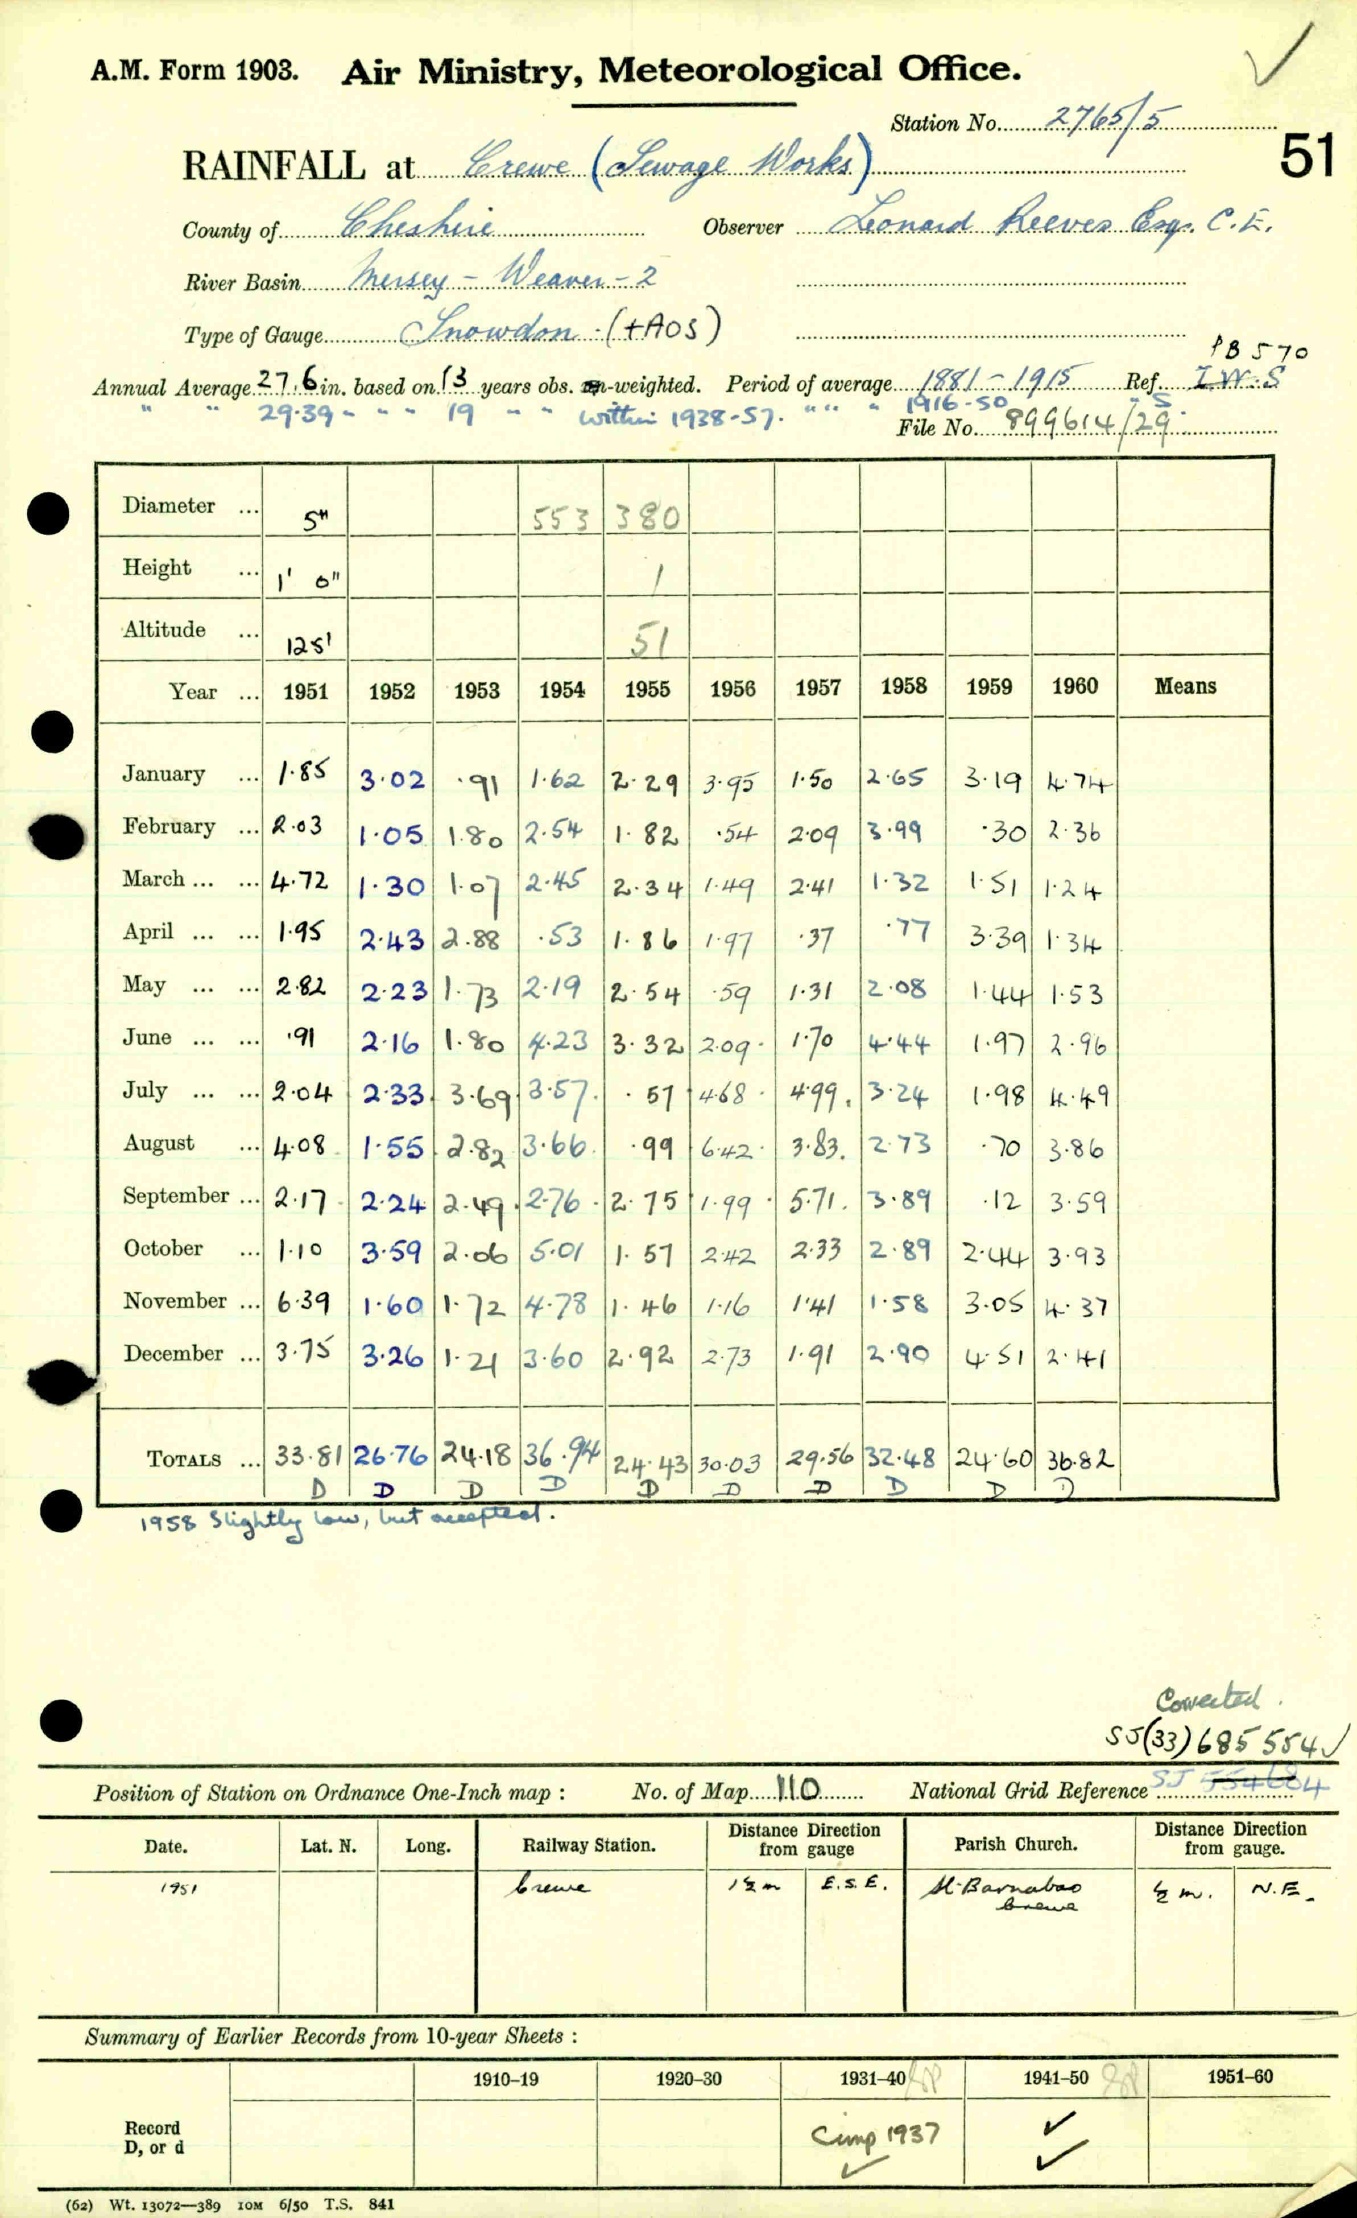 A.M. Form 1903. Air Ministry, Meteorological Office.
Station No. 2765/5
51
RAINFALL at Crewe (Sewage Works)
County of Cheshire Observer Leonard Reeves Esq. C.E.
River Basin Mersey - Weaver - 2
Type of Gauge Snowdon (+AOS)
PB 570
Annual Average 27.6 in. based on 13 years obs. -weighted. Period of average 1881-1915 Ref. I.W.S
" " 29.39 " " " 19 " " within 1938-57. " " " 1916-50 " S.
File No. 899614/29
Diameter ... 5" 553 380
Height ... 1' 0" 1
Altitude ... 125' 51
Year ... 1951 1952 1953 1954 1955 1956 1957 1958 1959 1960 Means
January ... 1.85 3.02 .91 1.62 2.29 3.95 1.50 2.65 3.19 4.74
February ... 2.03 1.05 1.80 2.54 1.82 .54 2.09 3.99 .30 2.36
March ... ... 4.72 1.30 1.07 2.45 2.34 1.49 2.41 1.32 1.51 1.24
April ... ... 1.95 2.43 2.88 .53 1.86 1.97 .37 .77 3.39 1.34
May ... ... 2.82 2.23 1.73 2.19 2.54 .59 1.31 2.08 1.44 1.53
June ... ... .91 2.16 1.80 4.23 3.32 2.09 1.70 4.44 1.97 2.96
July ... ... 2.04 2.33 3.69 3.57 .57 4.68 4.99 3.24 1.98 4.49
August ... 4.08 1.55 2.82 3.66 .99 6.42 3.83 2.73 .70 3.86
September ... 2.17 2.24 2.49 2.76 2.75 1.99 5.71 3.89 .12 3.59
October ... 1.10 3.59 2.06 5.01 1.57 2.42 2.33 2.89 2.44 3.93
November ... 6.39 1.60 1.72 4.78 1.46 1.16 1.41 1.58 3.05 4.37
December ... 3.75 3.26 1.21 3.60 2.92 2.73 1.91 2.90 4.51 2.41
TOTALS ... 33.81 26.76 24.18 36.94 24.43 30.03 29.56 32.48 24.60 36.82
D D D D D D D D D D
1958 Slightly low, but accepted.
Corrected.
SJ(33)685554 ✓
Position of Station on Ordnance One-Inch map : No. of Map 110 National Grid Reference SJ 554684
Date. Lat. N. Long. Railway Station. Distance from Direction gauge Parish Church. Distance from Direction gauge.
1951 Crewe 1½ m E.S.E. St Barnabas ½ m. N.E.
Crewe
Summary of Earlier Records from 10-year Sheets :
1910–19 1920–30 1931–40 1941–50 1951–60
Record
D, or d Comp 1937 ✓ ✓ ✓
(62) Wt. 13072—389 10M 6/50 T.S. 841